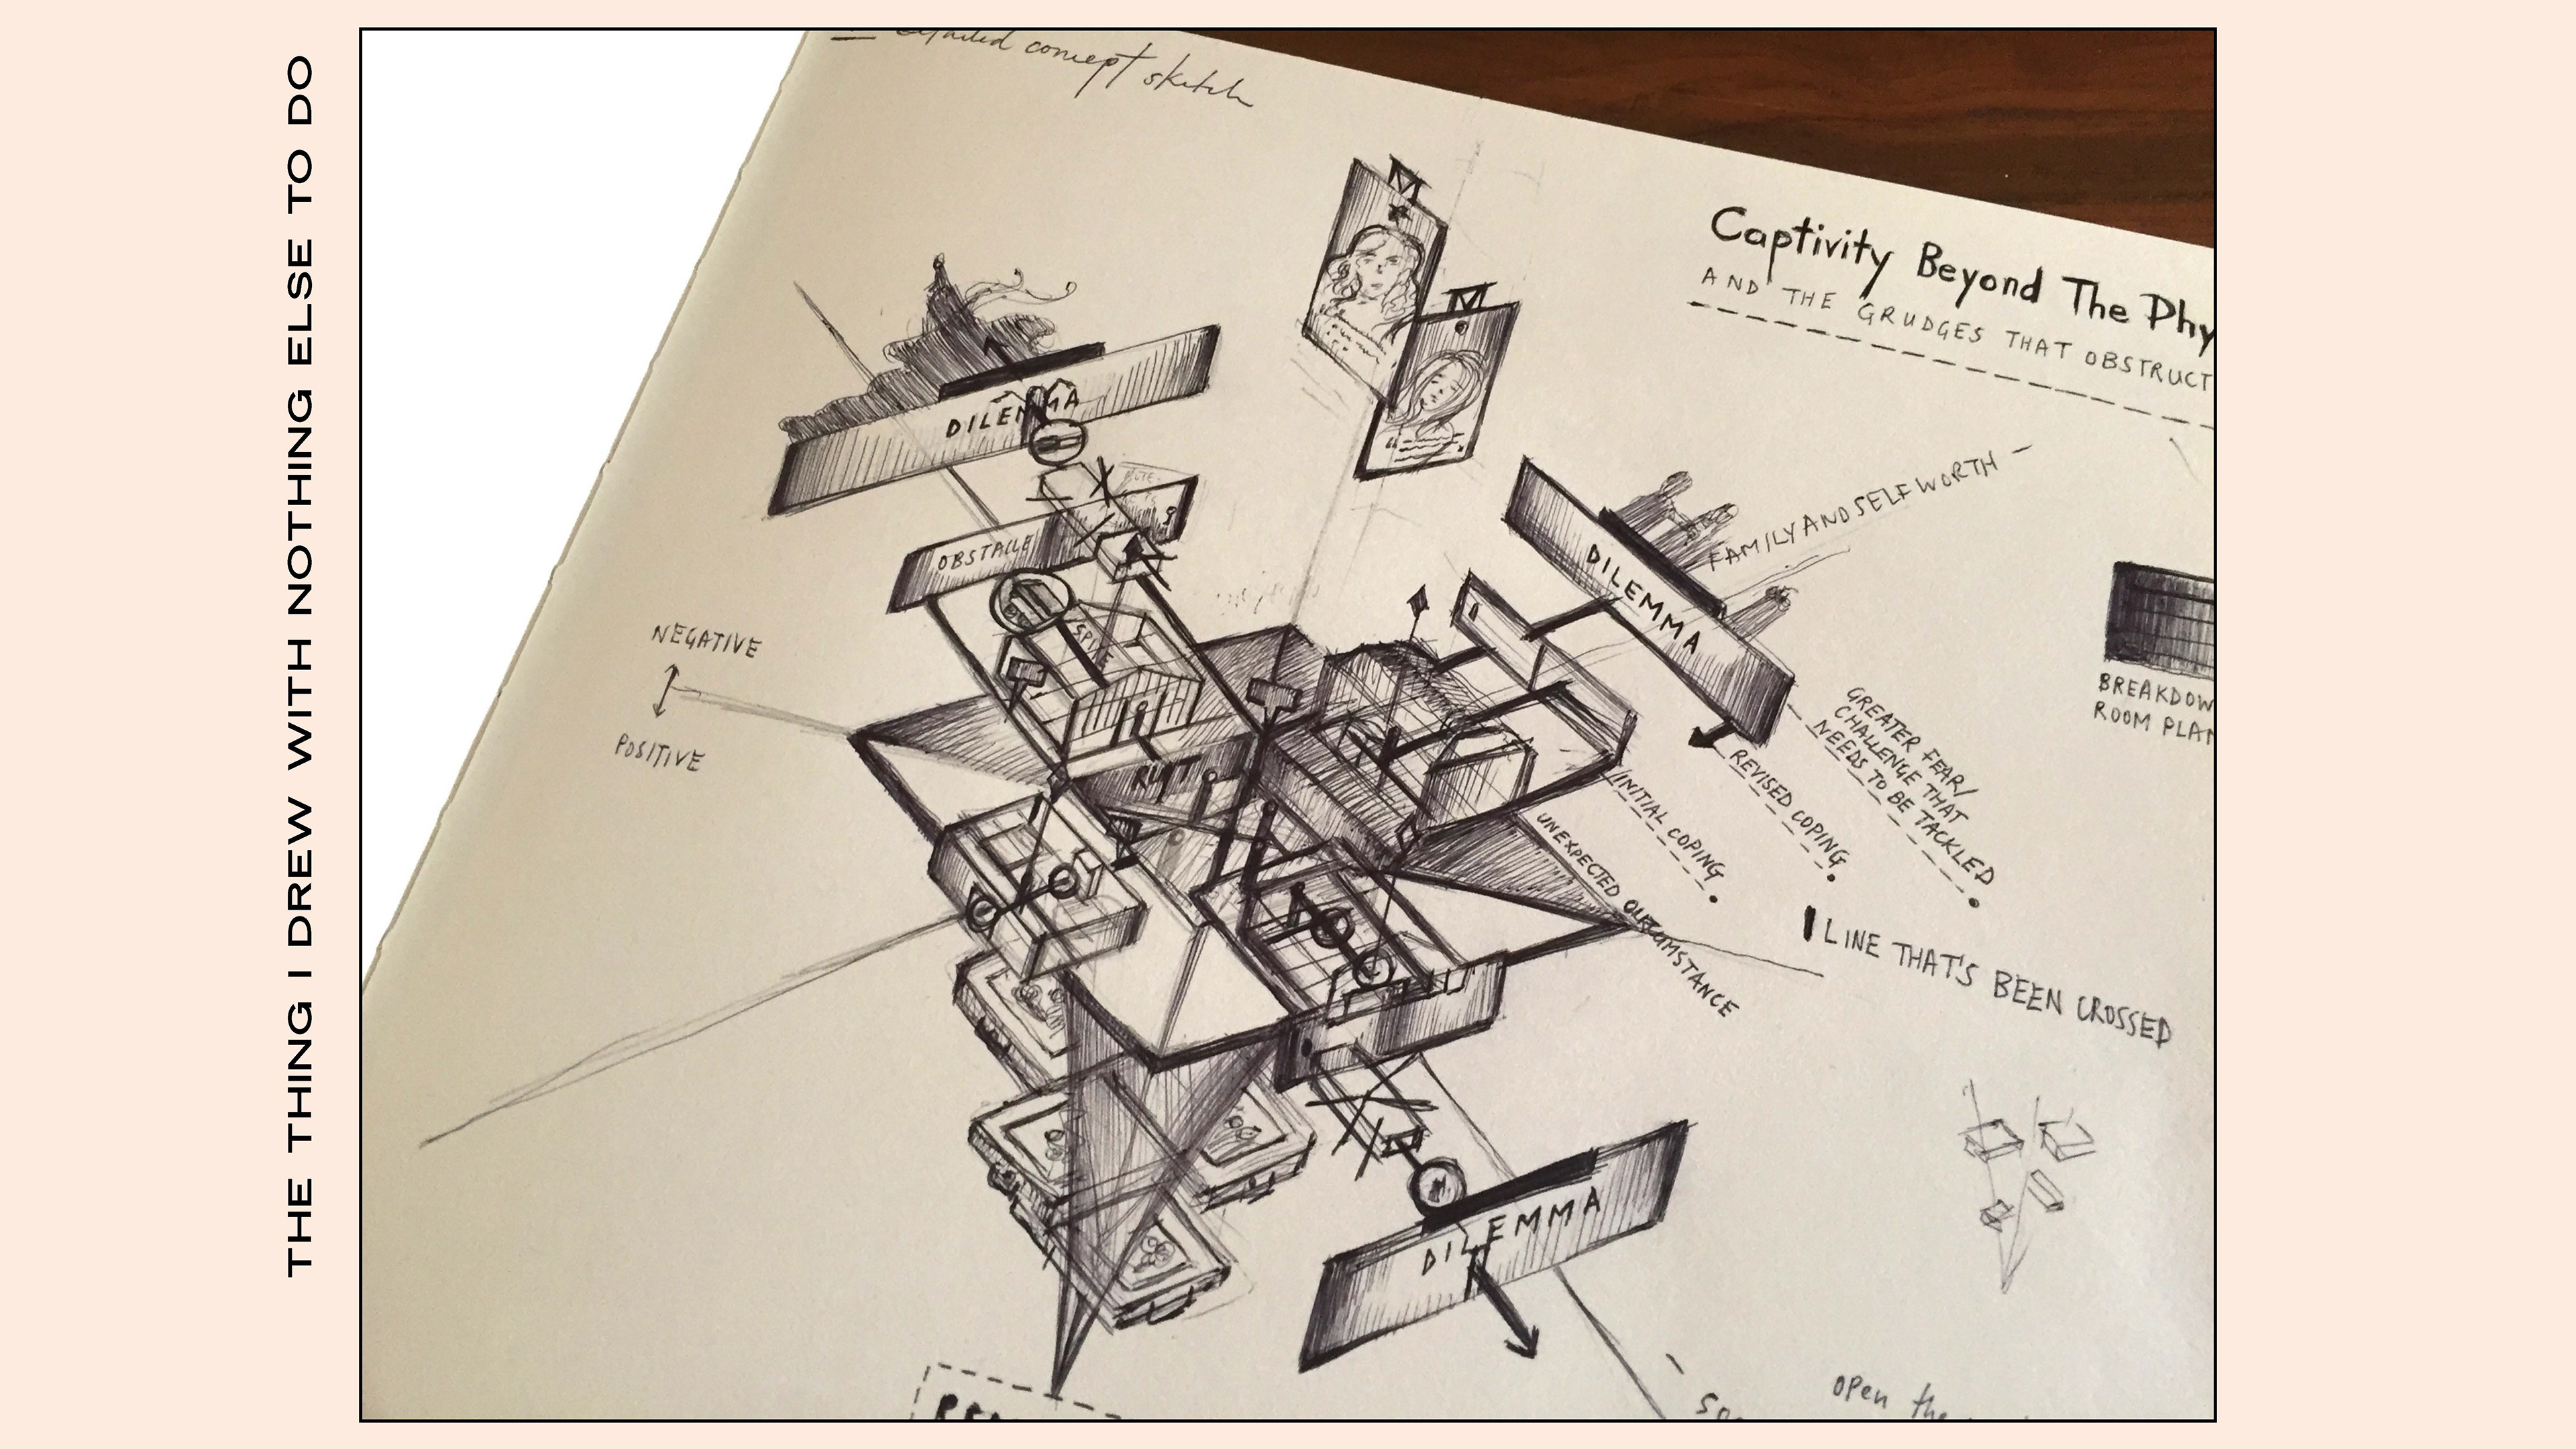 THE THING I DREW WITH NOTHING ELSE TO DO
concept sketch
Captivity Beyond The Phy
AND THE GRUDGES THAT OBSTRUCT
DILEMMA
OBSTACLE
SPITE
FAMILY AND SELF WORTH -
DILEMMA
NEGATIVE
POSITIVE
BREAKDOW
ROOM PLAN
GREATER FEAR/
CHALLENGE THAT
NEEDS TO BE TACKLED
REVISED COPING
INITIAL COPING
UNEXPECTED CIRCUMSTANCE
LINE THAT'S BEEN CROSSED
DILEMMA
open the